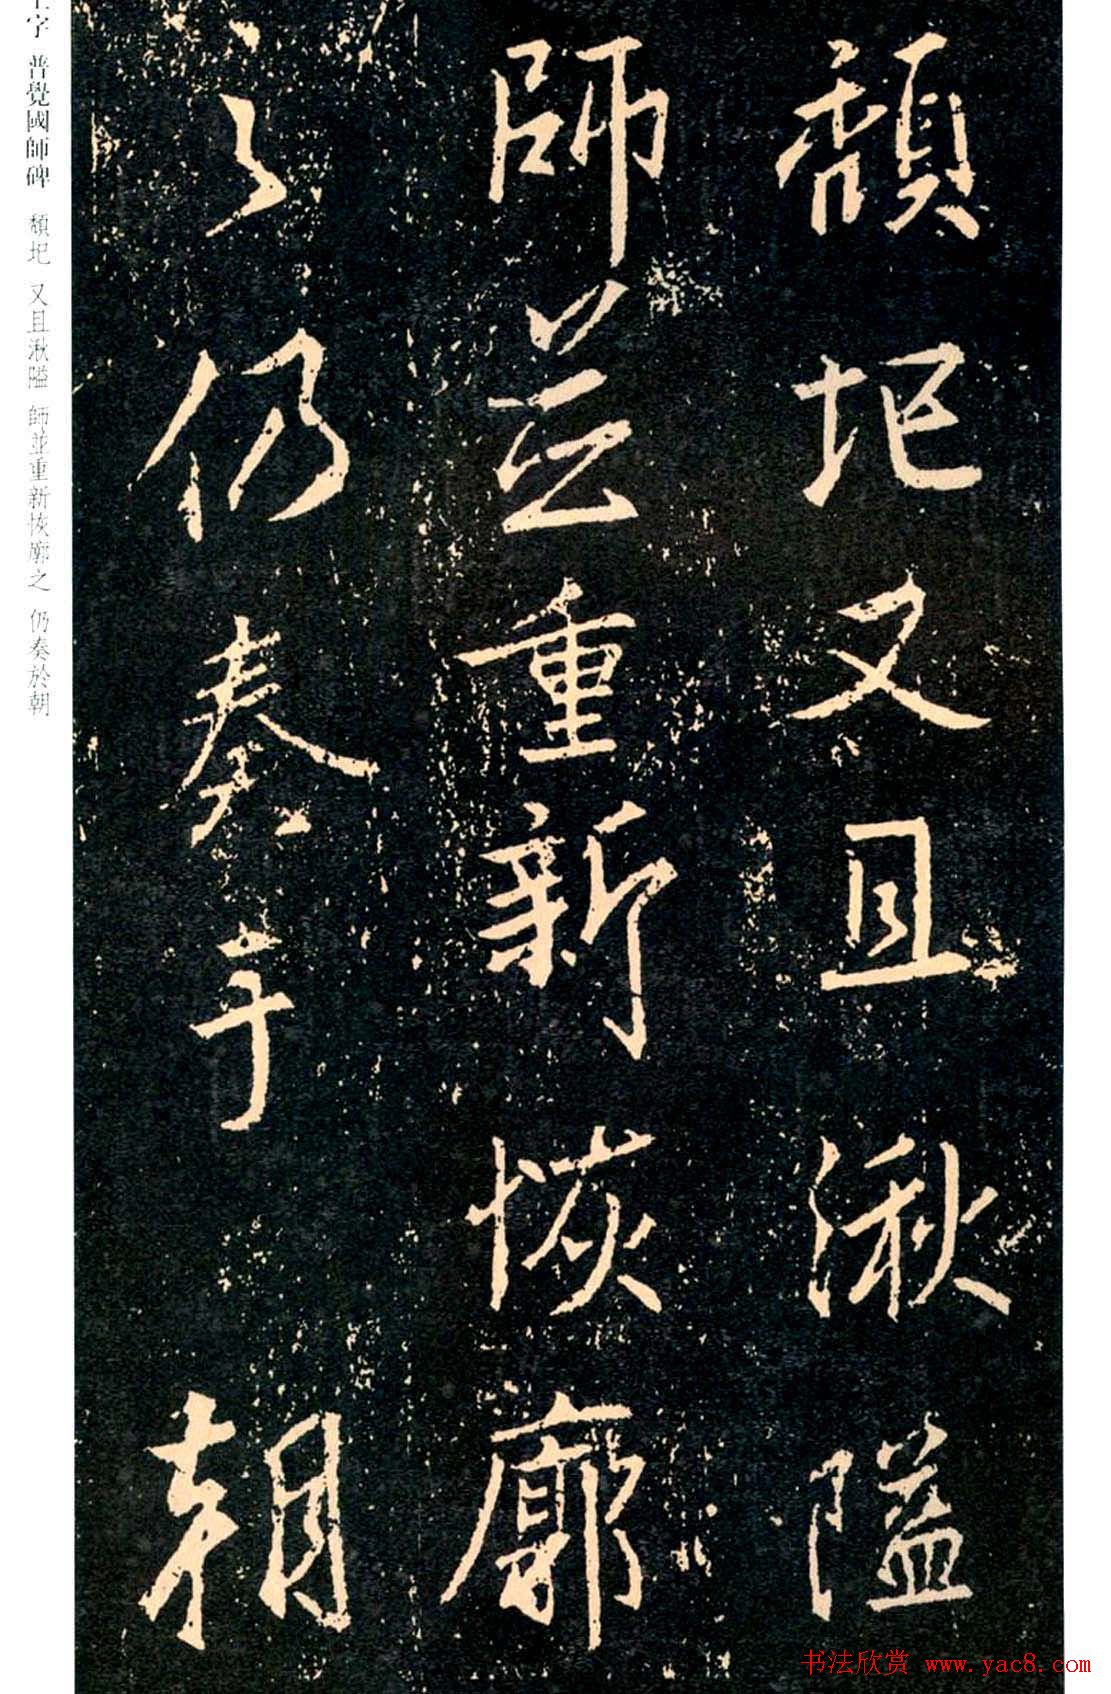 頹圯又且湫隘
師並重新恢廓
之仍奏于朝
字 普覺國師碑 頹圯 又且湫隘 師並重新恢廓之 仍奏於朝
书法欣赏 www.yac8.com